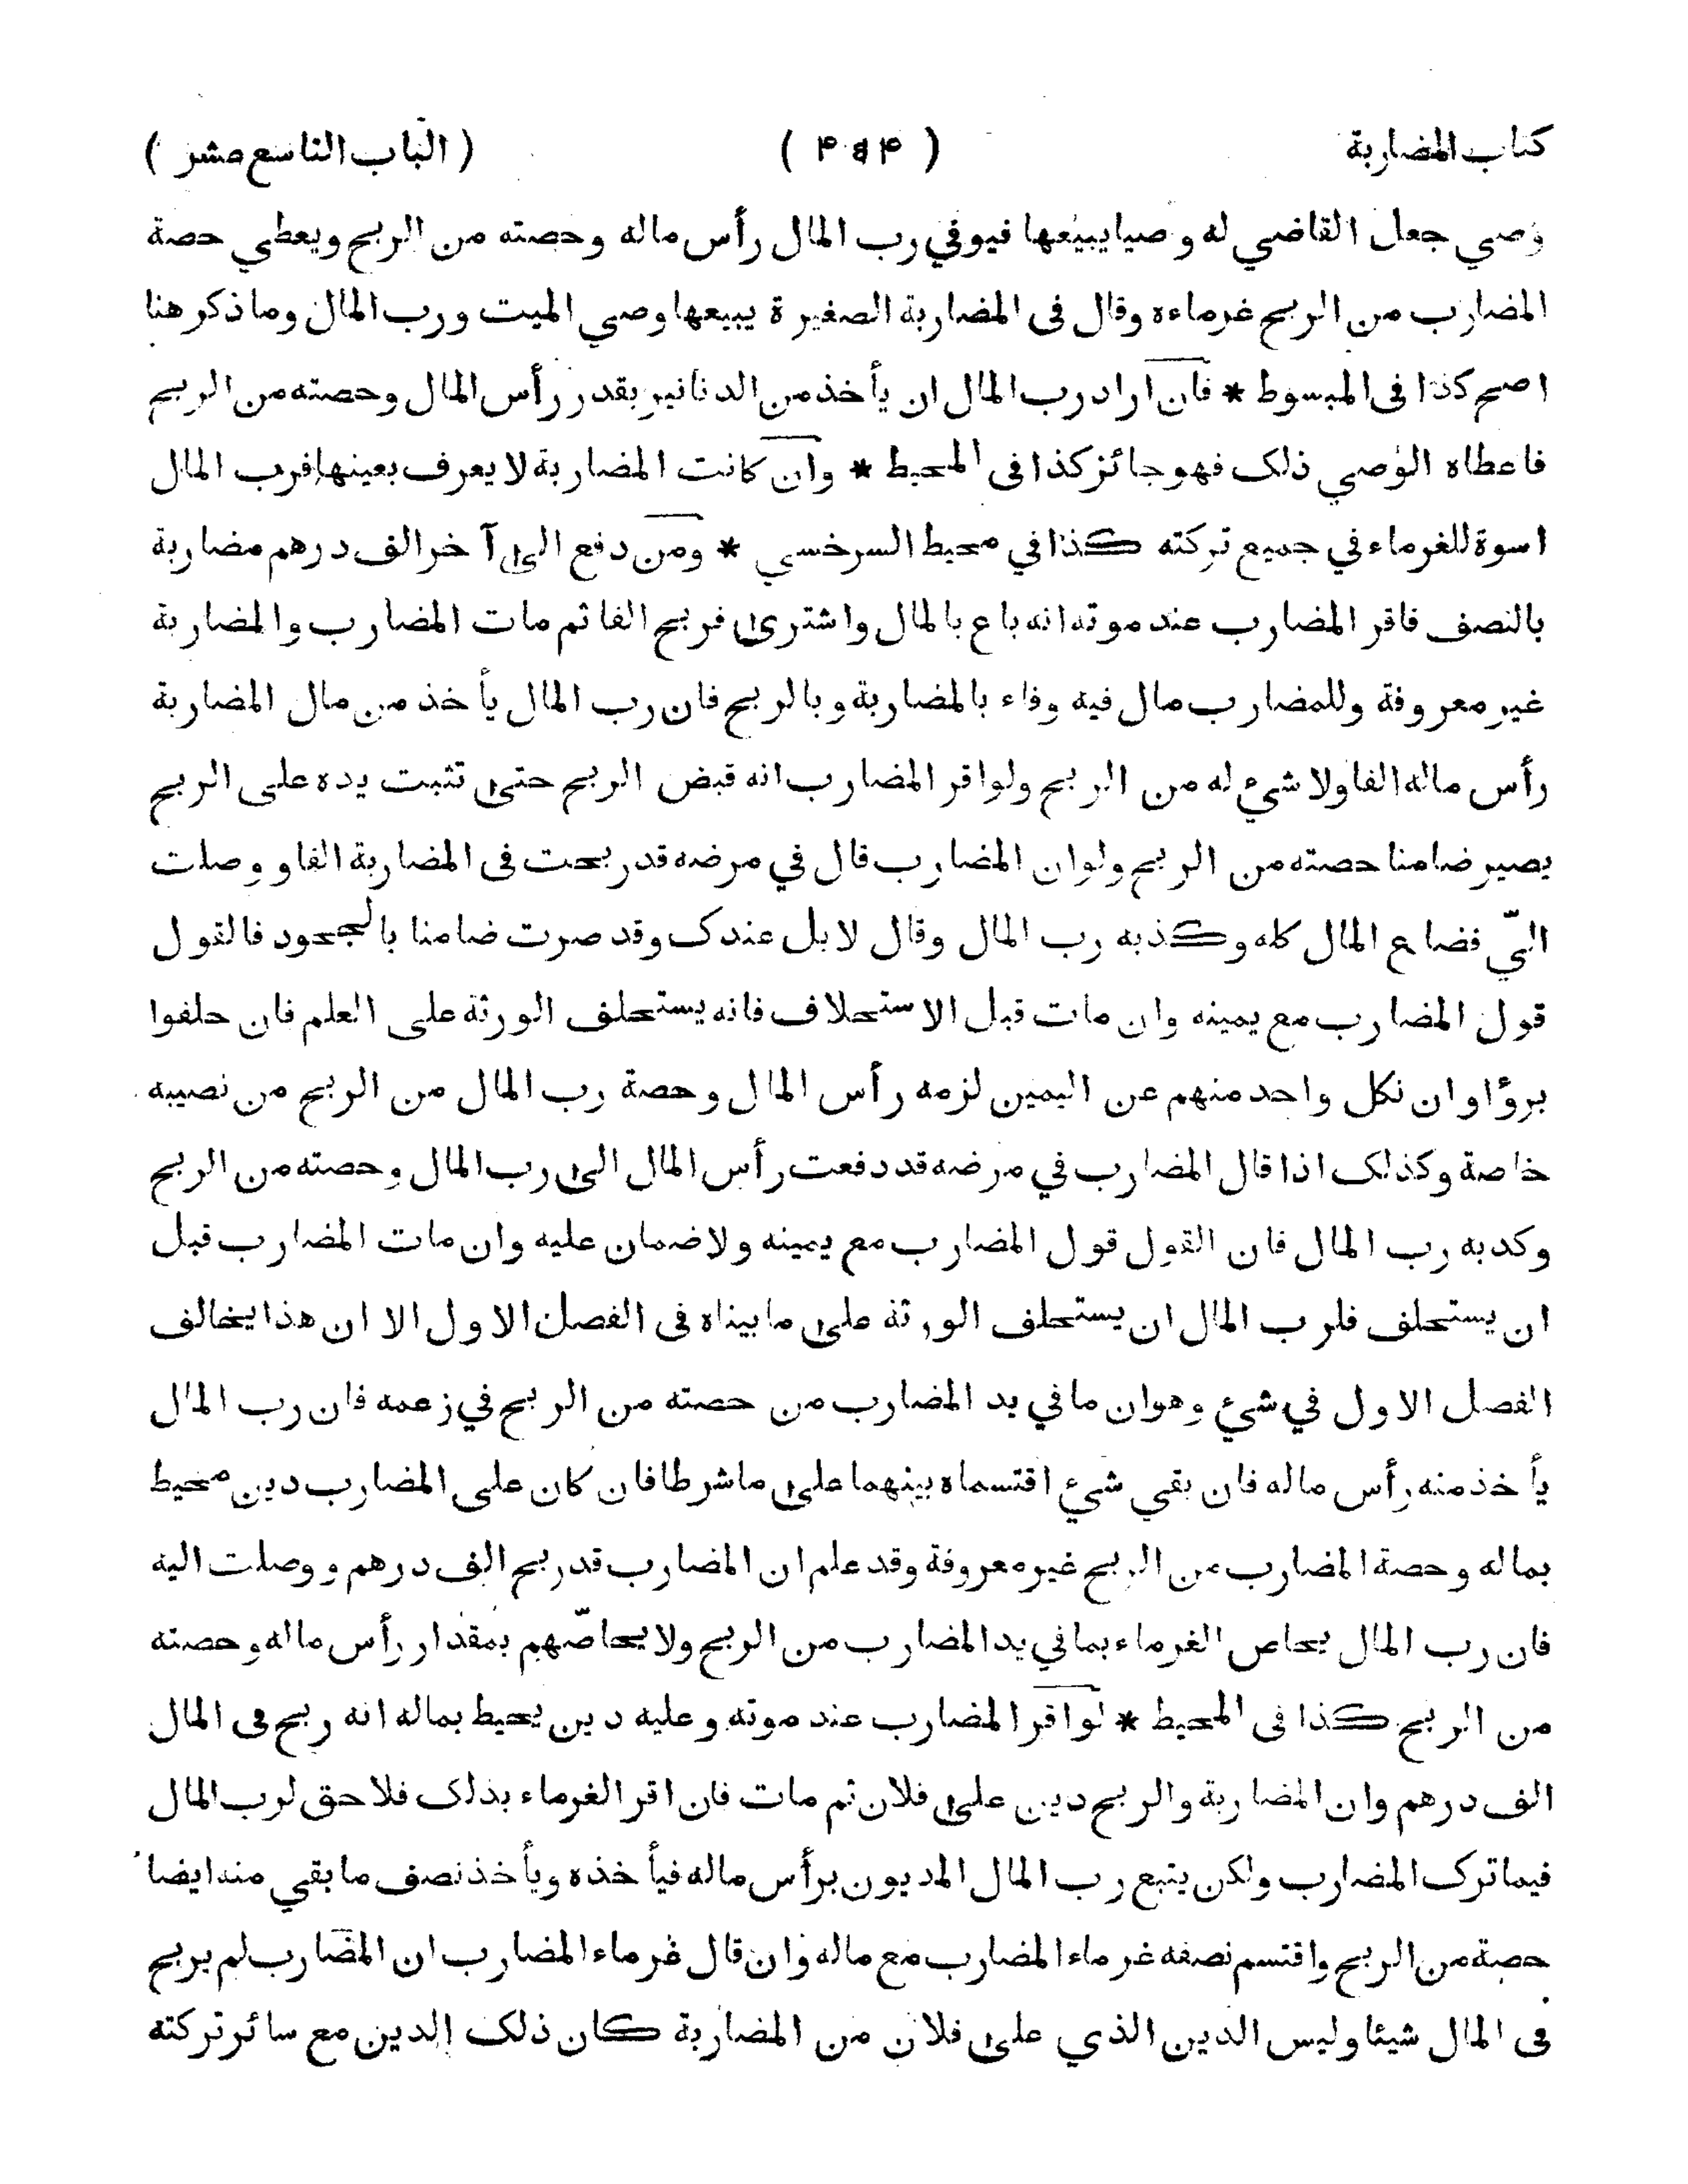 كتاب المضاربة ( ۴۵۴ ) ( الباب التاسع عشر )
وصي جعل القاضي له وصيا يبيعها فيوفي رب المال رأس ماله وحصته من الربح ويعطي حصة
المضارب من الربح غرماءه وقال فى المضاربة الصغيرة يبيعها وصي الميت ورب المال وما ذكر هنا
اصح كذا فى المبسوط * فان اراد رب المال ان يأخذ من الدنانير بقدر رأس المال وحصته من الربح
فاعطاه الوصي ذلك فهو جائز كذا فى المحيط * وان كانت المضاربة لا يعرف بعينها فرب المال
اسوة للغرماء في جميع تركته كذا في محيط السرخسي * ومن دفع الى آخر الف درهم مضاربة
بالنصف فاقر المضارب عند موته انه باع بالمال واشترى فربح الفا ثم مات المضارب والمضاربة
غير معروفة وللمضارب مال فيه وفاء بالمضاربة وبالربح فان رب المال يأخذ من مال المضاربة
رأس ماله الفا ولا شيء له من الربح ولو اقر المضارب انه قبض الربح حتى تثبت يده على الربح
يصير ضامنا حصته من الربح ولو ان المضارب قال في مرضه قد ربحت فى المضاربة الفا ووصلت
اليّ فضاع المال كله وكذبه رب المال وقال لا بل عندك وقد صرت ضامنا بالجحود فالقول
قول المضارب مع يمينه وان مات قبل الاستحلاف فانه يستحلف الورثة على العلم فان حلفوا
برؤا وان نكل واحد منهم عن اليمين لزمه رأس المال وحصة رب المال من الربح من نصيبه
خاصة وكذلك اذا قال المضارب في مرضه قد دفعت رأس المال الى رب المال وحصته من الربح
وكذبه رب المال فان القول قول المضارب مع يمينه ولا ضمان عليه وان مات المضارب قبل
ان يستحلف فلرب المال ان يستحلف الورثة على ما بيناه فى الفصل الاول الا ان هذا يخالف
الفصل الاول في شيء وهو ان ما في يد المضارب من حصته من الربح في زعمه فان رب المال
يأخذ منه رأس ماله فان بقي شيء اقتسماه بينهما على ما شرطا فان كان على المضارب دين محيط
بماله وحصة المضارب من الربح غير معروفة وقد علم ان المضارب قد ربح الف درهم ووصلت اليه
فان رب المال يحاص الغرماء بما في يد المضارب من الربح ولا يحاصّهم بمقدار رأس ماله وحصته
من الربح كذا فى المحيط * لو اقر المضارب عند موته وعليه دين يحيط بماله انه ربح فى المال
الف درهم وان المضاربة والربح دين على فلان ثم مات فان اقر الغرماء بذلك فلا حق لرب المال
فيما ترك المضارب ولكن يتبع رب المال المديون برأس ماله فيأخذه ويأخذ نصف ما بقي منه ايضا
حصة من الربح واقتسم نصفه غرماء المضارب مع ماله وان قال غرماء المضارب ان المضارب لم يربح
فى المال شيئا وليس الدين الذي على فلان من المضاربة كان ذلك الدين مع سائر تركته